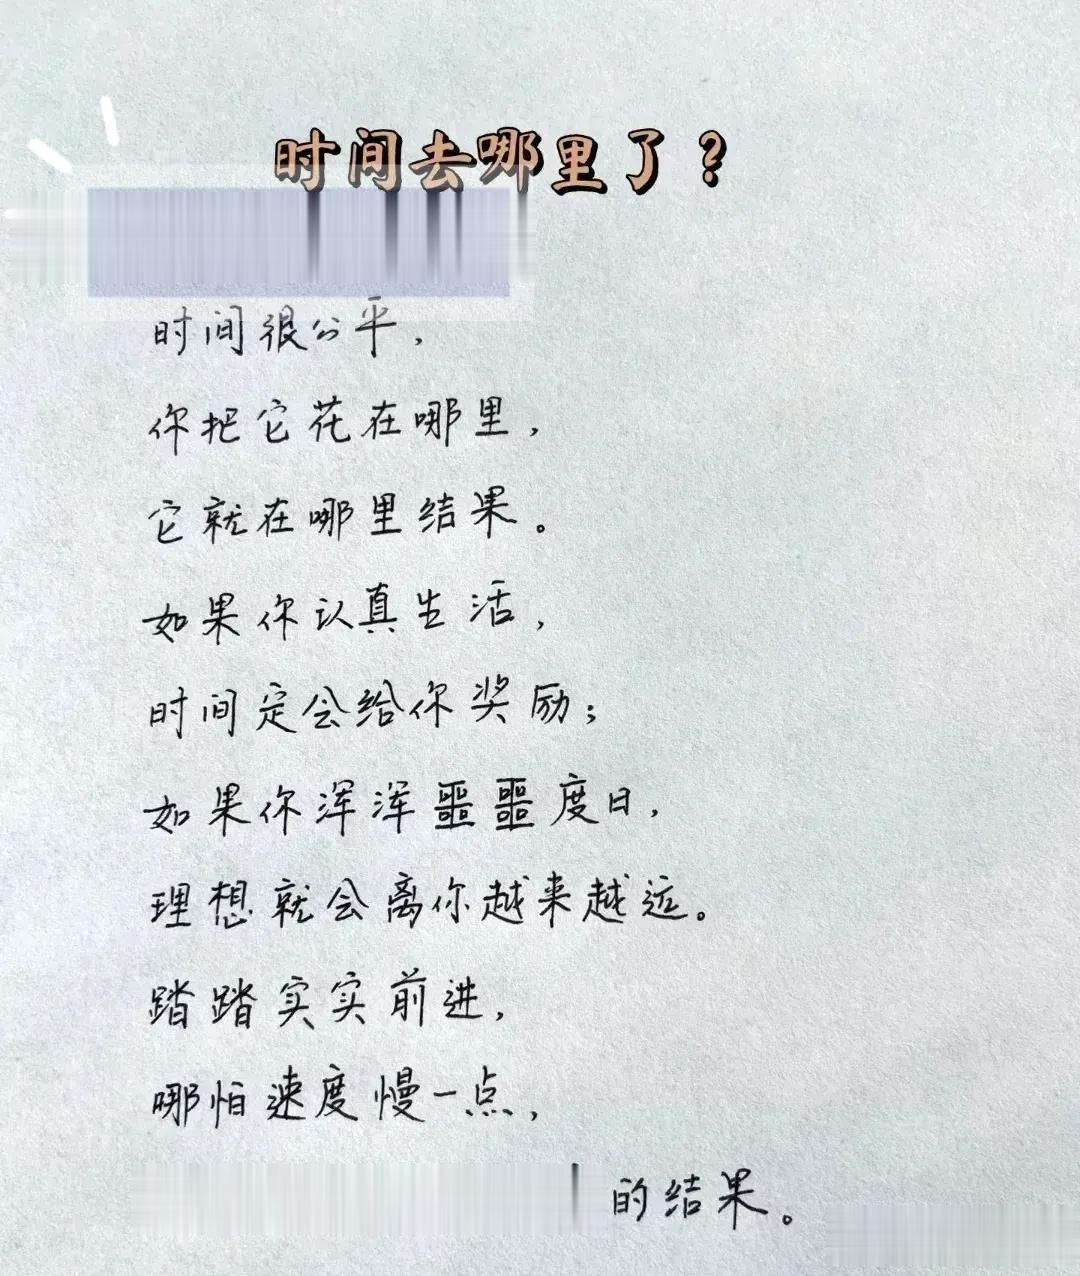 时间去哪里了？
时间很公平，
你把它花在哪里，
它就在哪里结果。
如果你认真生活，
时间定会给你奖励；
如果你浑浑噩噩度日，
理想就会离你越来越远。
踏踏实实前进，
哪怕速度慢一点，
的结果。